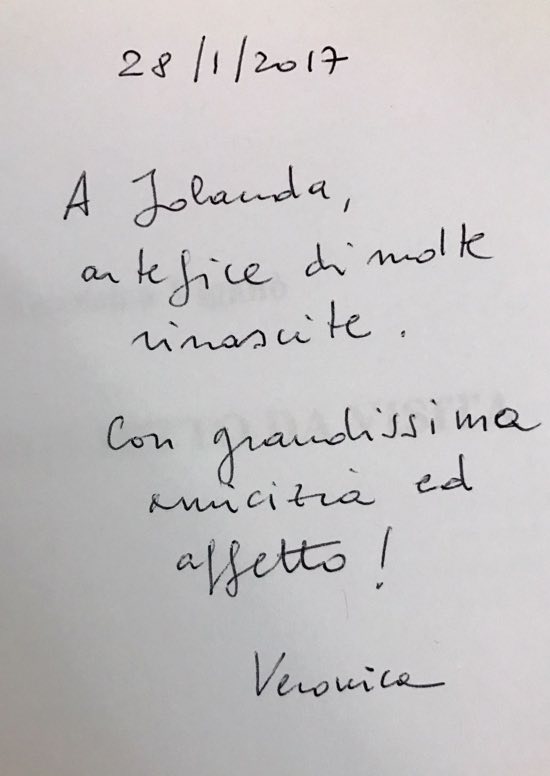 28/1/2017
A Jolanda,
artefice di molte
rinascite.
Con grandissima
amicizia ed
affetto!
Veronica